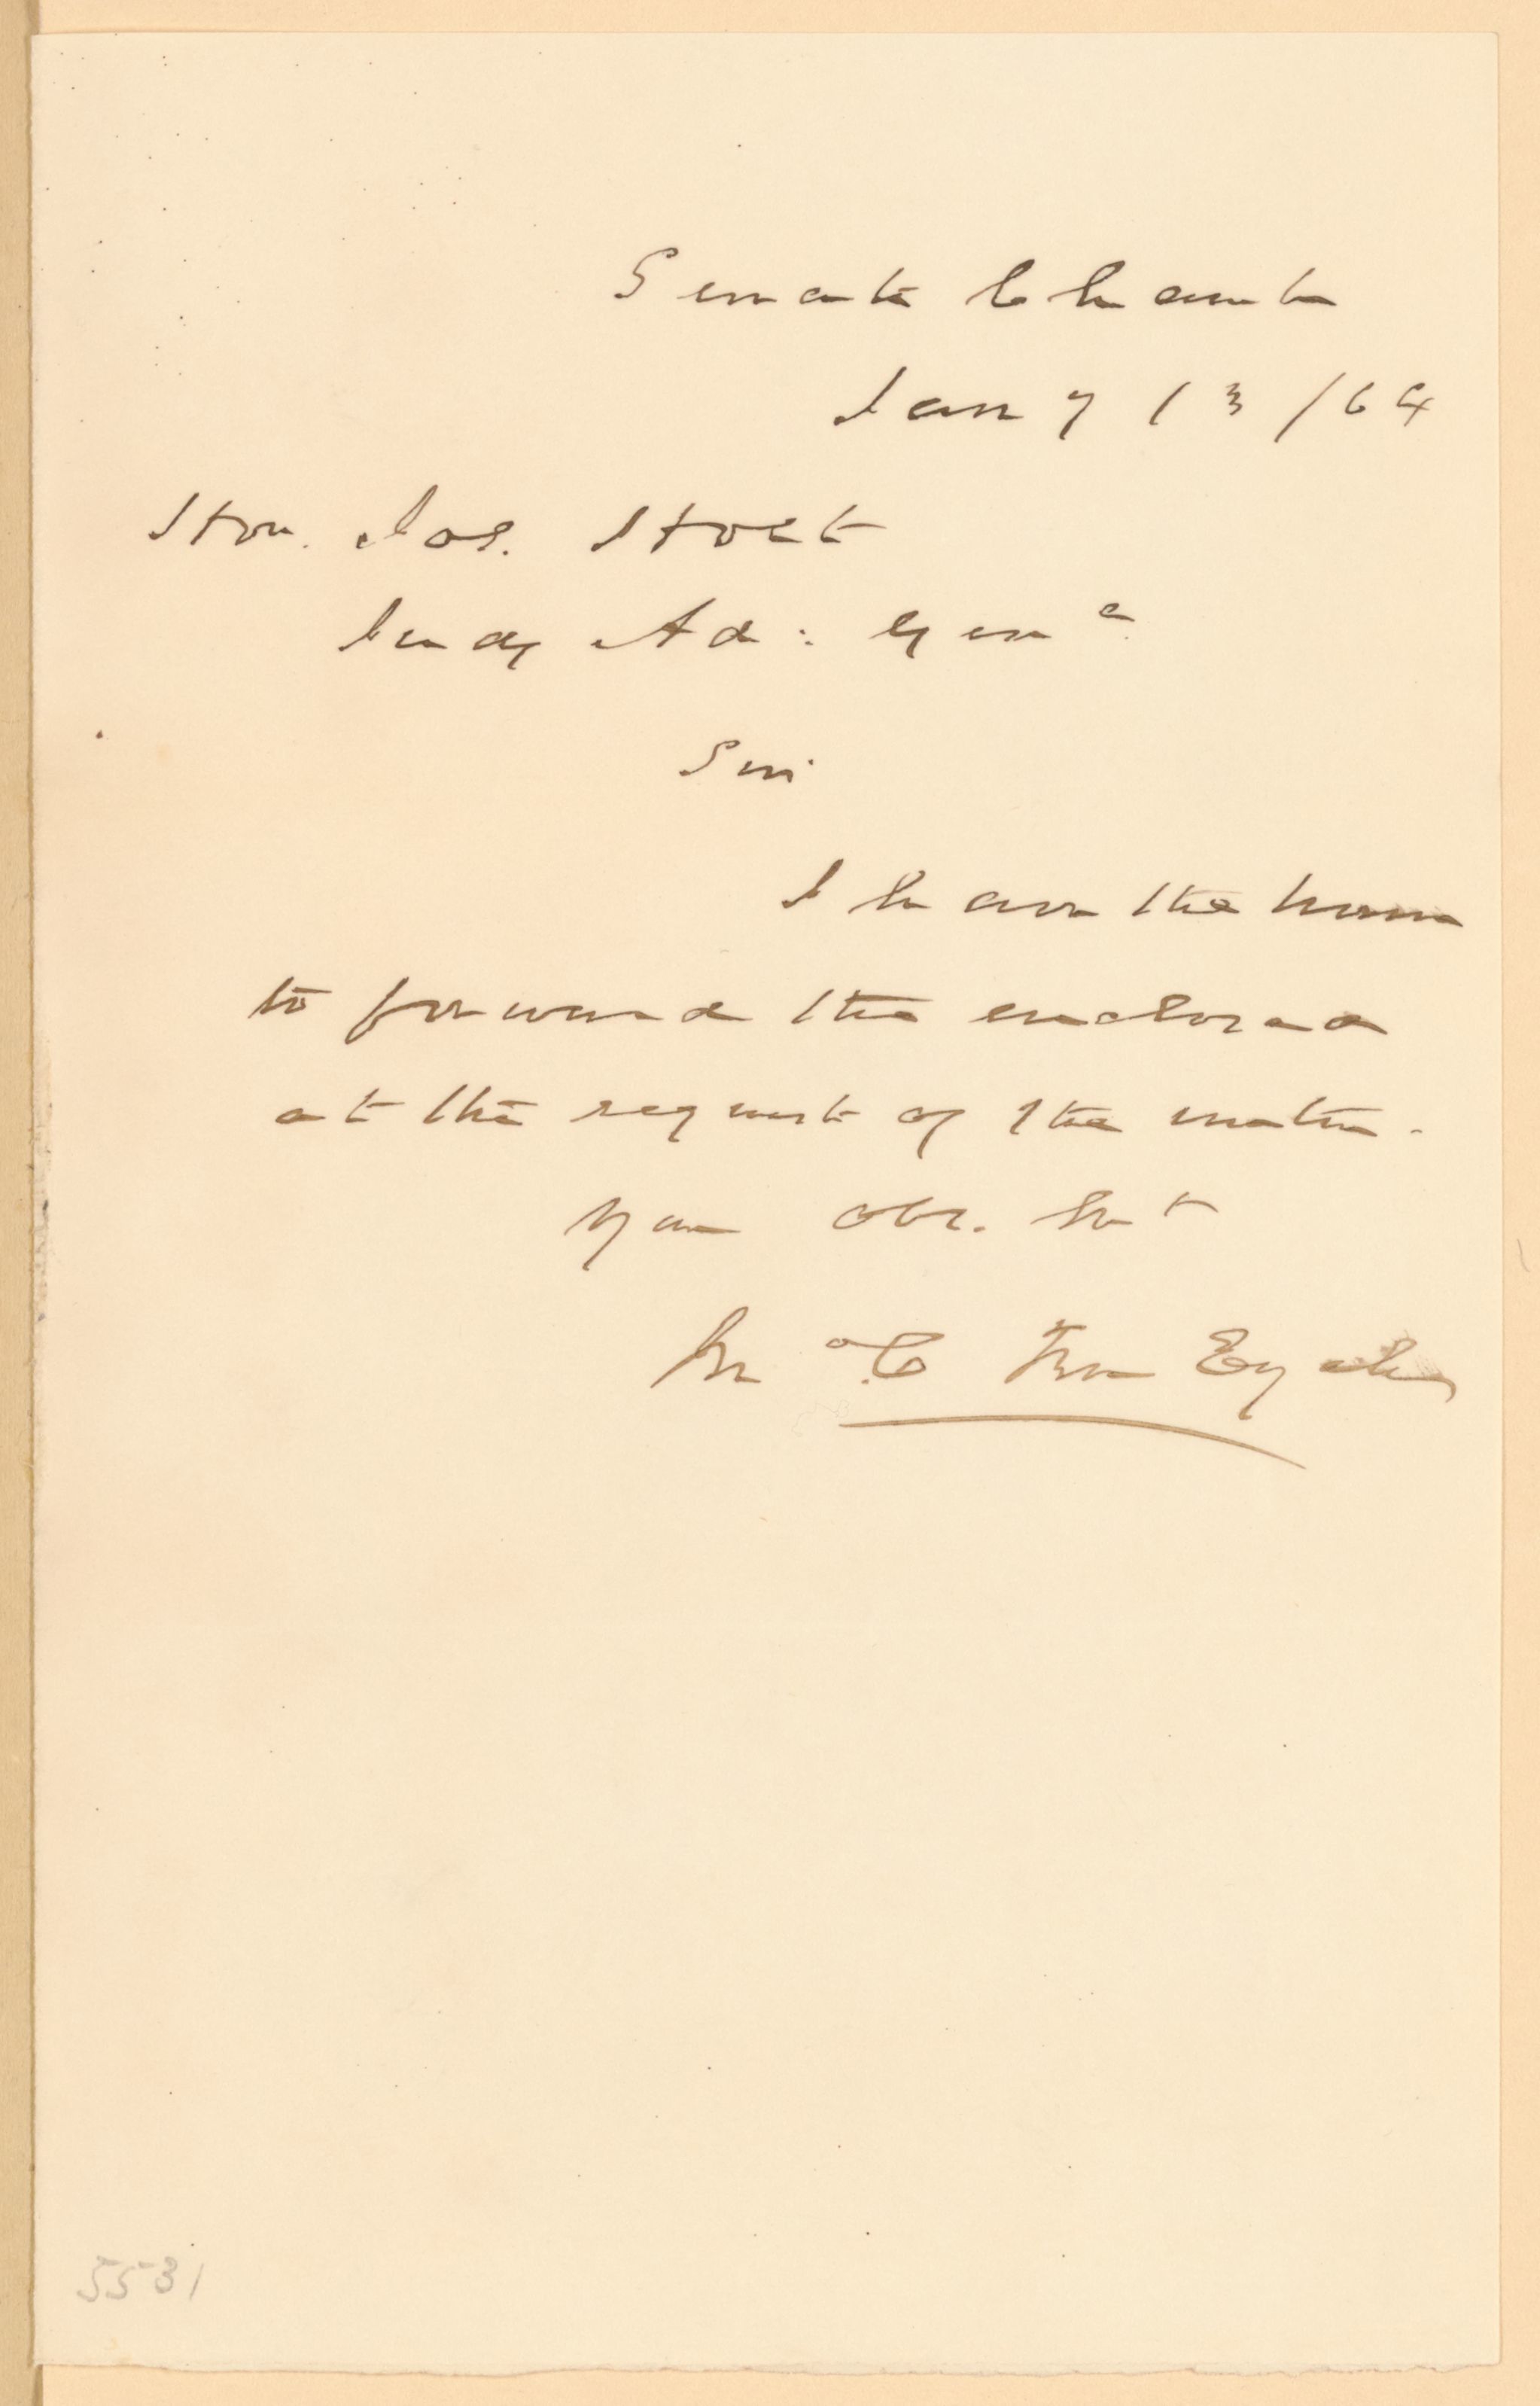 Senate Chamber
Jany 13/64
Hon. Jos. Holt
Judg Ad: Genl.
Sir
I have the honor
to forward the enclosed
at the request of the writer.
Your obt. Svt
Jn C Ten Eyck
5531